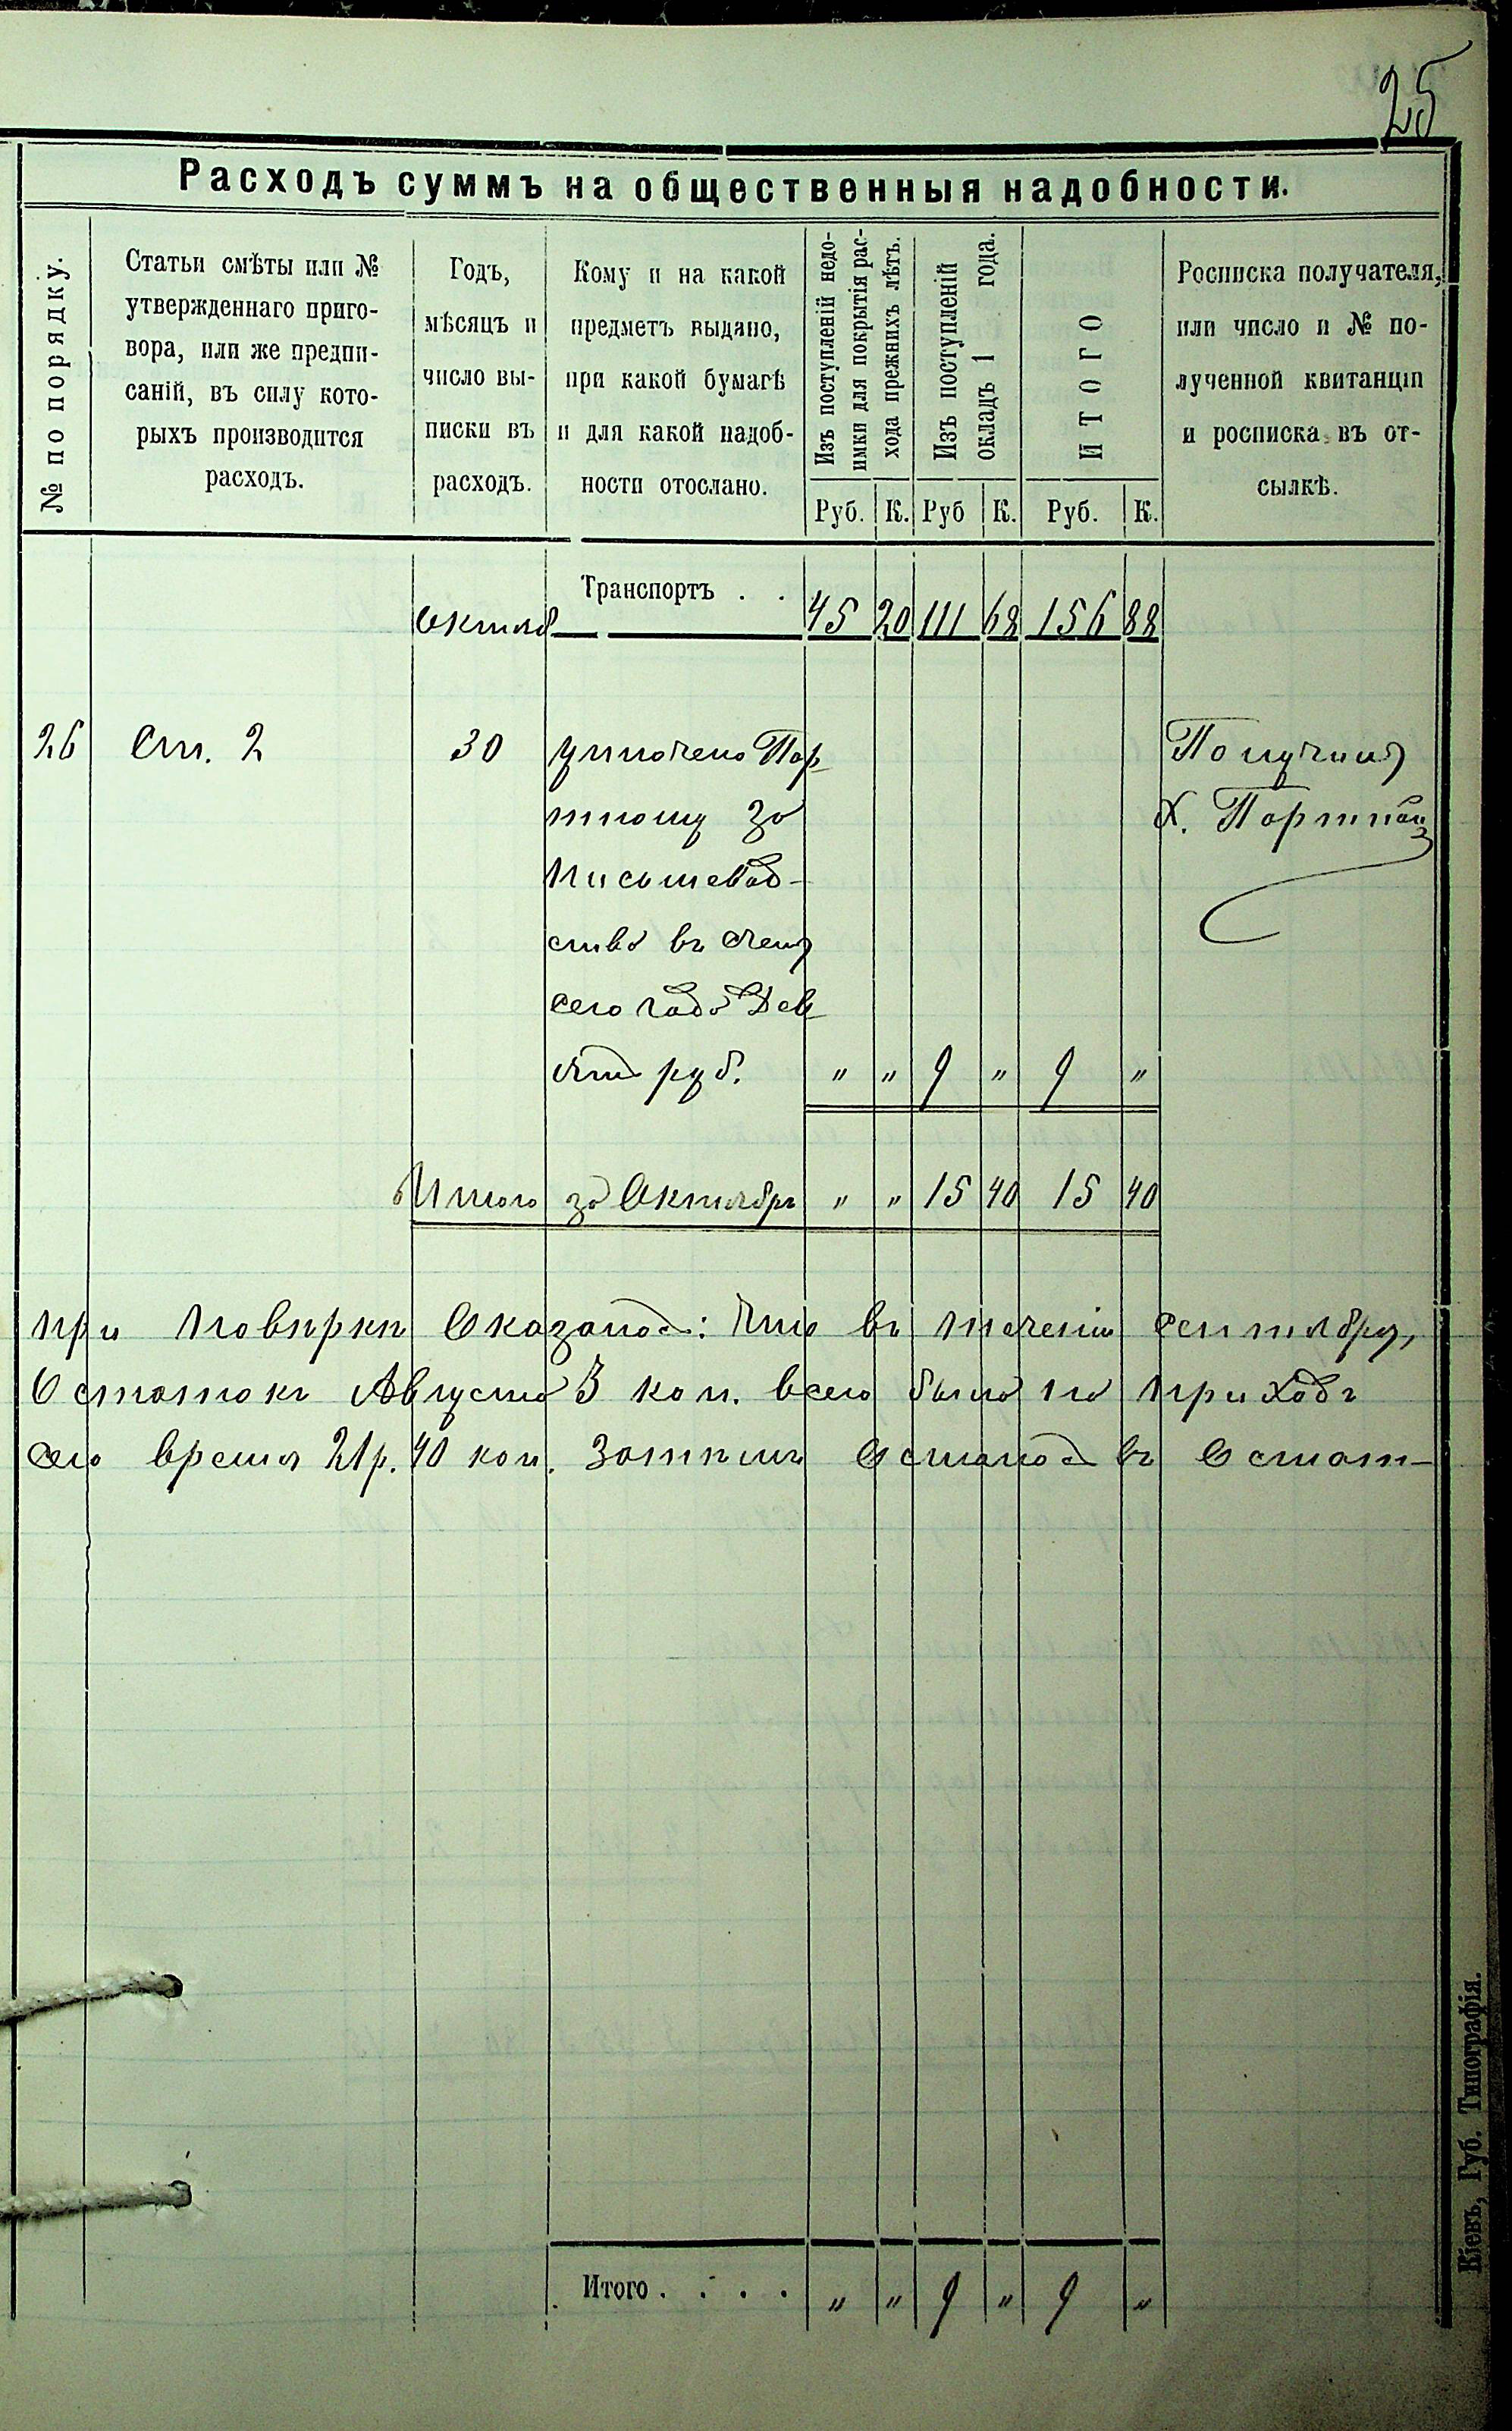 25
Расходъ суммъ на общественныя надобности.
№ по порядку.
Статьи смѣты или №
утвержденнаго приго-
вора, или же предпи-
саній, въ силу кото-
рыхъ производится
расходъ.
Годъ,
мѣсяцъ и
число вы-
писки въ
расходъ.
Кому и на какой
предметъ выдано,
при какой бумагѣ
и для какой надоб-
ности отослано.
Изъ поступленій недо-
имки для покрытія рас-
хода прежнихъ лѣтъ.
Изъ поступленій
окладъ 1 года.
ИТОГО
Росписка получателя,
или число и № по-
лученной квитанціи
и росписка въ от-
сылкѣ.
Руб. К. Руб К. Руб. К.
Транспортъ . .
Октяб 45 20 111 68 156 88
26 Ст. 2 30 уплочено Пор- Получилъ
тному за Х. Портной
письмевод-
ство въ счетъ
сего года Дев-
ять руб. " " 9 " 9 "
Итого за Октябрь " " 15 40 15 40
при повѣркѣ Оказалось: Что въ теченіи сентября,
Остатокъ Августа 3 коп. всего было по приходъ
сего время 21р. 40 коп. Затѣмъ Осталось въ Остат-
Итого . . . . " " 9 " 9 "
Кіевъ, Губ. Типографія.